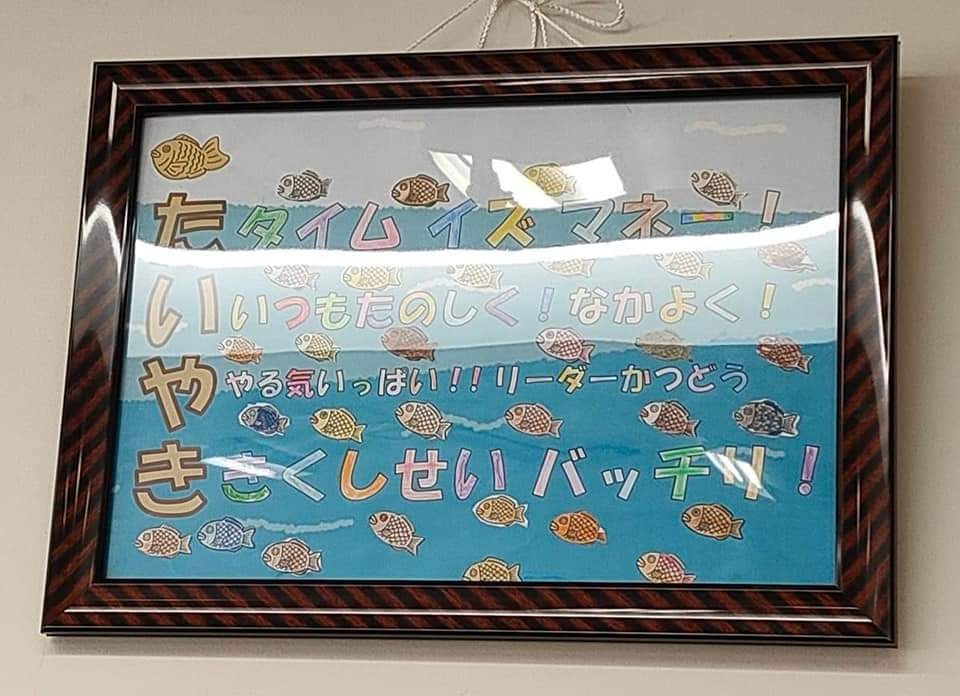 た タイム イズ マネー！
い いつもたのしく！なかよく！
や やる気いっぱい！！リーダーかつどう
き きくしせい バッチリ！